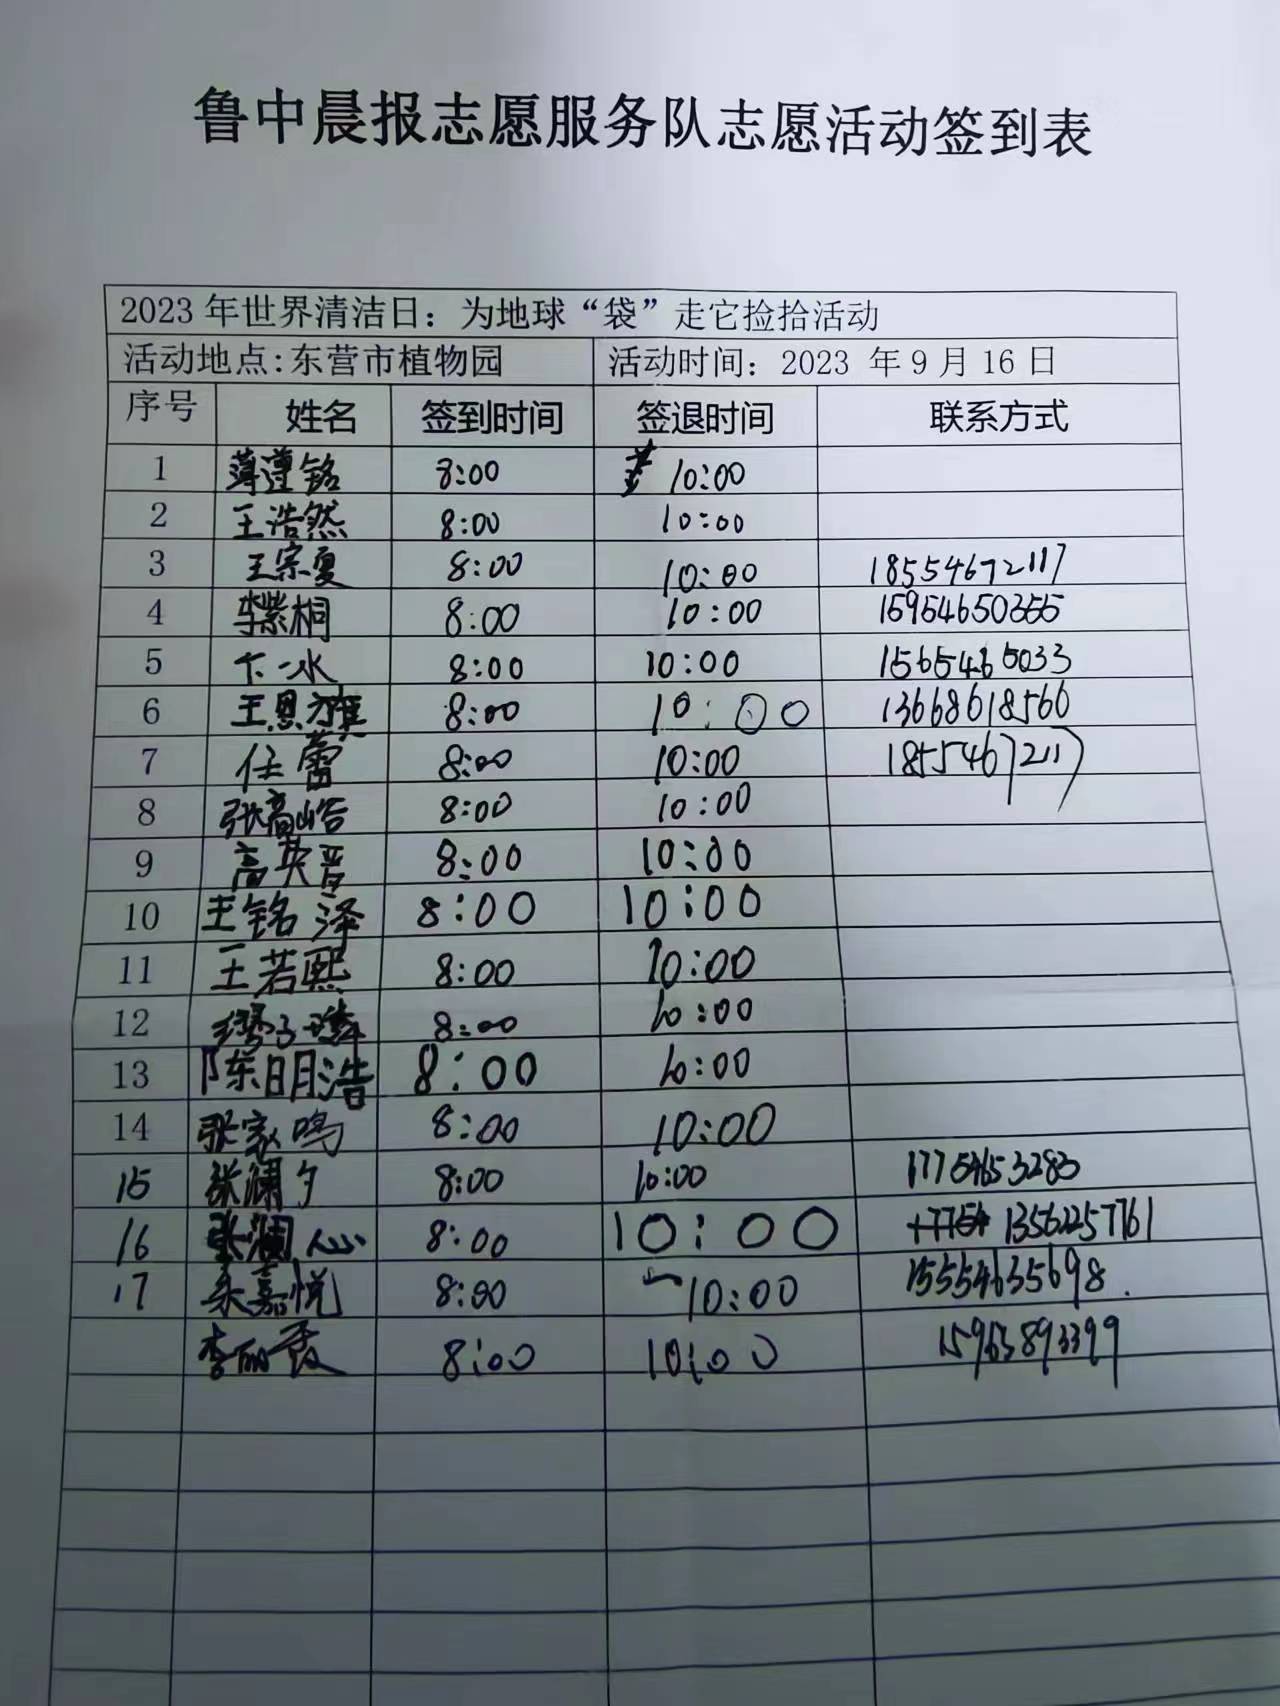 鲁中晨报志愿服务队志愿活动签到表
2023年世界清洁日：为地球“袋”走它捡拾活动
活动地点:东营市植物园 活动时间：2023 年9月16日
序号 姓名 签到时间 签退时间 联系方式
1 薄遵铭 8:00 10:00
2 王浩然 8:00 10:00
3 王宗夏 8:00 10:00 18554672117
4 李紫桐 8:00 10:00 15954650355
5 卞一水 8:00 10:00 15654665033
6 王恩 8:00 10:00 13668618560
7 任蕾 8:00 10:00 18554672117
8 张高峪 8:00 10:00
9 高英晋 8:00 10:00
10 王铭泽 8:00 10:00
11 王若熙 8:00 10:00
12 8:00 10:00
13 陈明浩 8:00 10:00
14 张家鸣 8:00 10:00
15 张澜夕 8:00 10:00 17754653283
16 张澜心 8:00 10:00 13562257161
17 嘉悦 8:00 10:00 15554635698.
李丽霞 8:00 10:00 15965893399